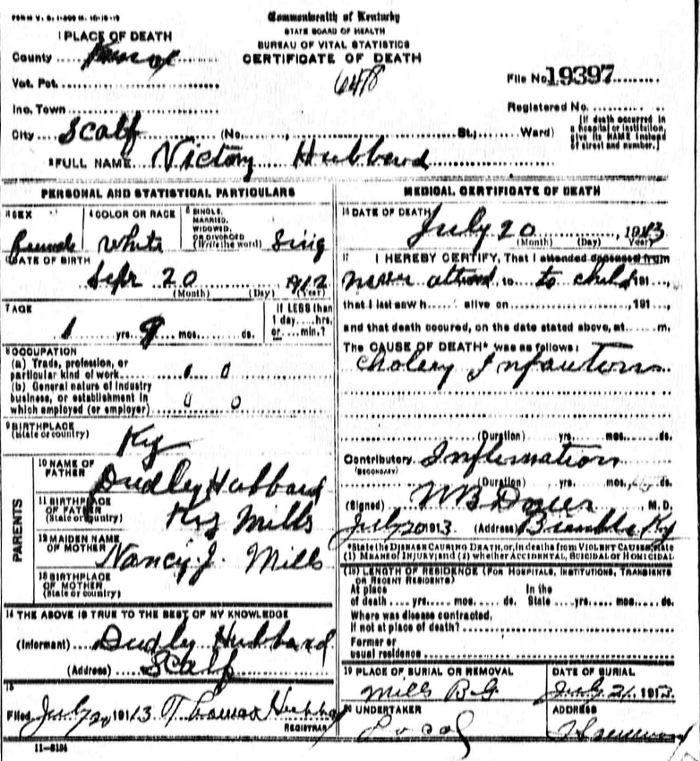 FORM V. S. 1-300 M. 10-18-10
Commonwealth of Kentucky
STATE BOARD OF HEALTH
BUREAU OF VITAL STATISTICS
CERTIFICATE OF DEATH
1 PLACE OF DEATH
County Knox
Vot. Pct.
File No. 19397
Inc. Town
Registered No.
City Scalf (No. St.; Ward)
(If death occurred in a hospital or institution, give its NAME instead of street and number.)
2 FULL NAME Victory Hubbard
PERSONAL AND STATISTICAL PARTICULARS
3 SEX
Female
4 COLOR OR RACE
White
5 SINGLE, MARRIED, WIDOWED, OR DIVORCED (Write the word)
Sing
6 DATE OF BIRTH
Sept 20 1912
(Month) (Day) (Year)
7 AGE
1 yrs. 9 mos. ds.
If LESS than 1 day....hrs. or....min.?
8 OCCUPATION
(a) Trade, profession, or particular kind of work
(b) General nature of industry business, or establishment in which employed (or employer)
9 BIRTHPLACE
(State or country)
Ky
PARENTS
10 NAME OF FATHER
Dudly Hubbard
11 BIRTHPLACE OF FATHER (State or country)
Ky Mills
12 MAIDEN NAME OF MOTHER
Nancy J. Mills
13 BIRTHPLACE OF MOTHER (State or country)
14 THE ABOVE IS TRUE TO THE BEST OF MY KNOWLEDGE
(Informant) Dudly Hubbard
(Address) Scalf
15
Filed July 20 1913 Thomas Hubbard
REGISTRAR
11-6184
MEDICAL CERTIFICATE OF DEATH
16 DATE OF DEATH July 20 1913
(Month) (Day) (Year)
17 I HEREBY CERTIFY, That I attended deceased from
never attend to to child 191
that I last saw h alive on 191
and that death occured, on the date stated above, at m.
The CAUSE OF DEATH* was as follows:
Cholery Infantum
(Duration) yrs. mos. ds.
Contributory Inflemation
(SECONDARY)
(Duration) yrs. mos. ds.
(Signed) W B Dozier M.D.
July 20 1913 (Address) Bramble Ky
*State the DISEASE CAUSING DEATH, or, in deaths from VIOLENT CAUSES, state
(1) MEANS OF INJURY; and (2) whether ACCIDENTAL, SUICIDAL or HOMICIDAL.
(18) LENGTH OF RESIDENCE (FOR HOSPITALS, INSTITUTIONS, TRANSIENTS OR RECENT RESIDENTS)
At place of death yrs. mos. ds. In the State yrs. mos. ds.
Where was disease contracted, If not at place of death?
Former or usual residence
19 PLACE OF BURIAL OR REMOVAL
Mills B G
DATE OF BURIAL
July 21 1913
20 UNDERTAKER
Local
ADDRESS